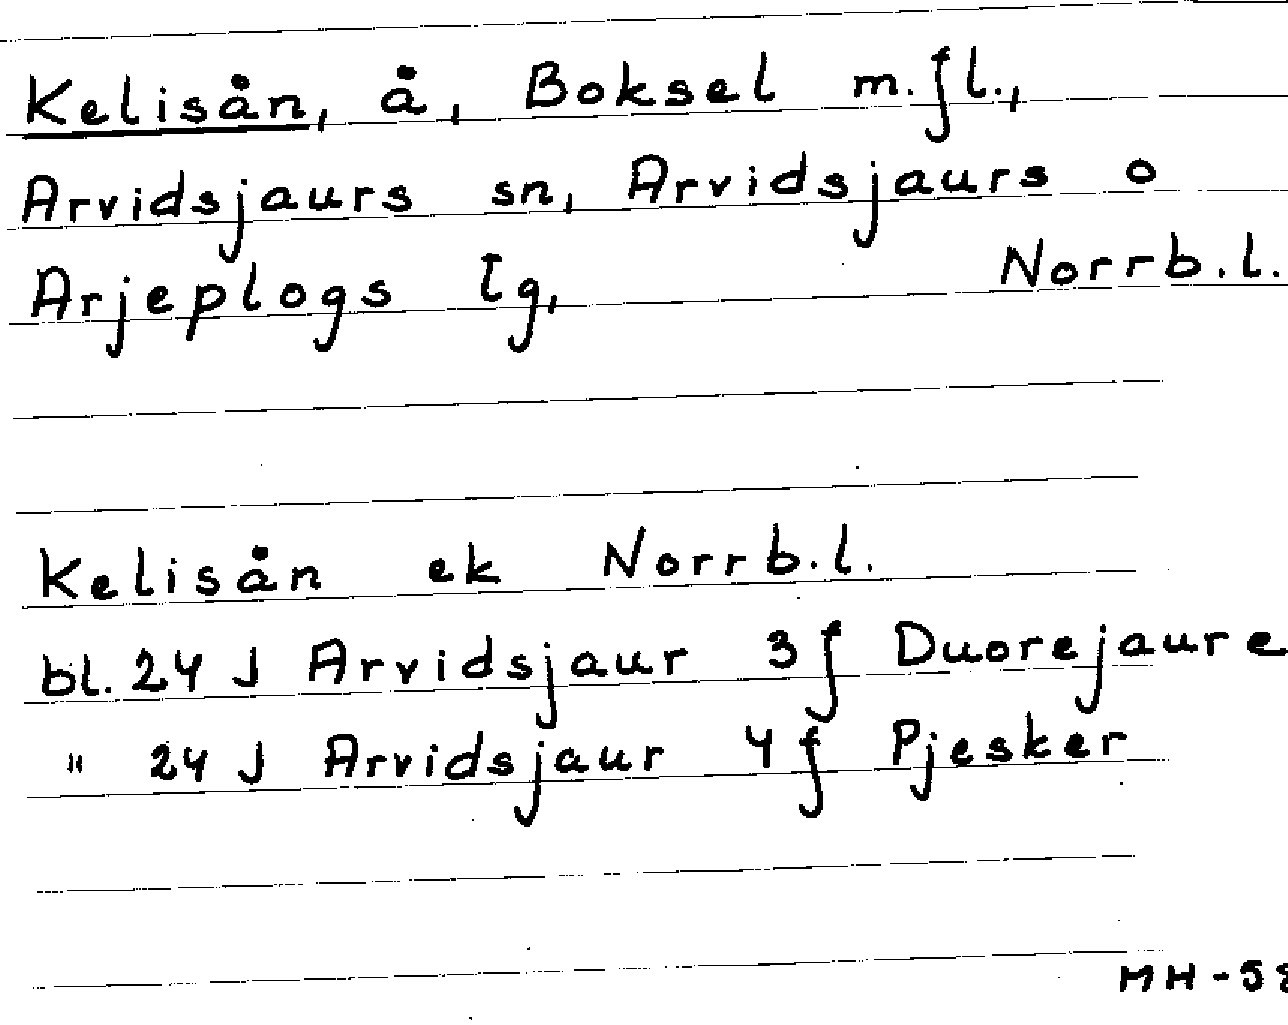 Kelisån, å, Boksel m.fl.,
Arvidsjaurs sn, Arvidsjaurs o
Arjeplogs lg, Norrb.l.
Kelisån ek Norrb.l.
bl. 24 J Arvidsjaur 3f Duorejaure
" 24 J Arvidsjaur 4f Pjesker
MH-58